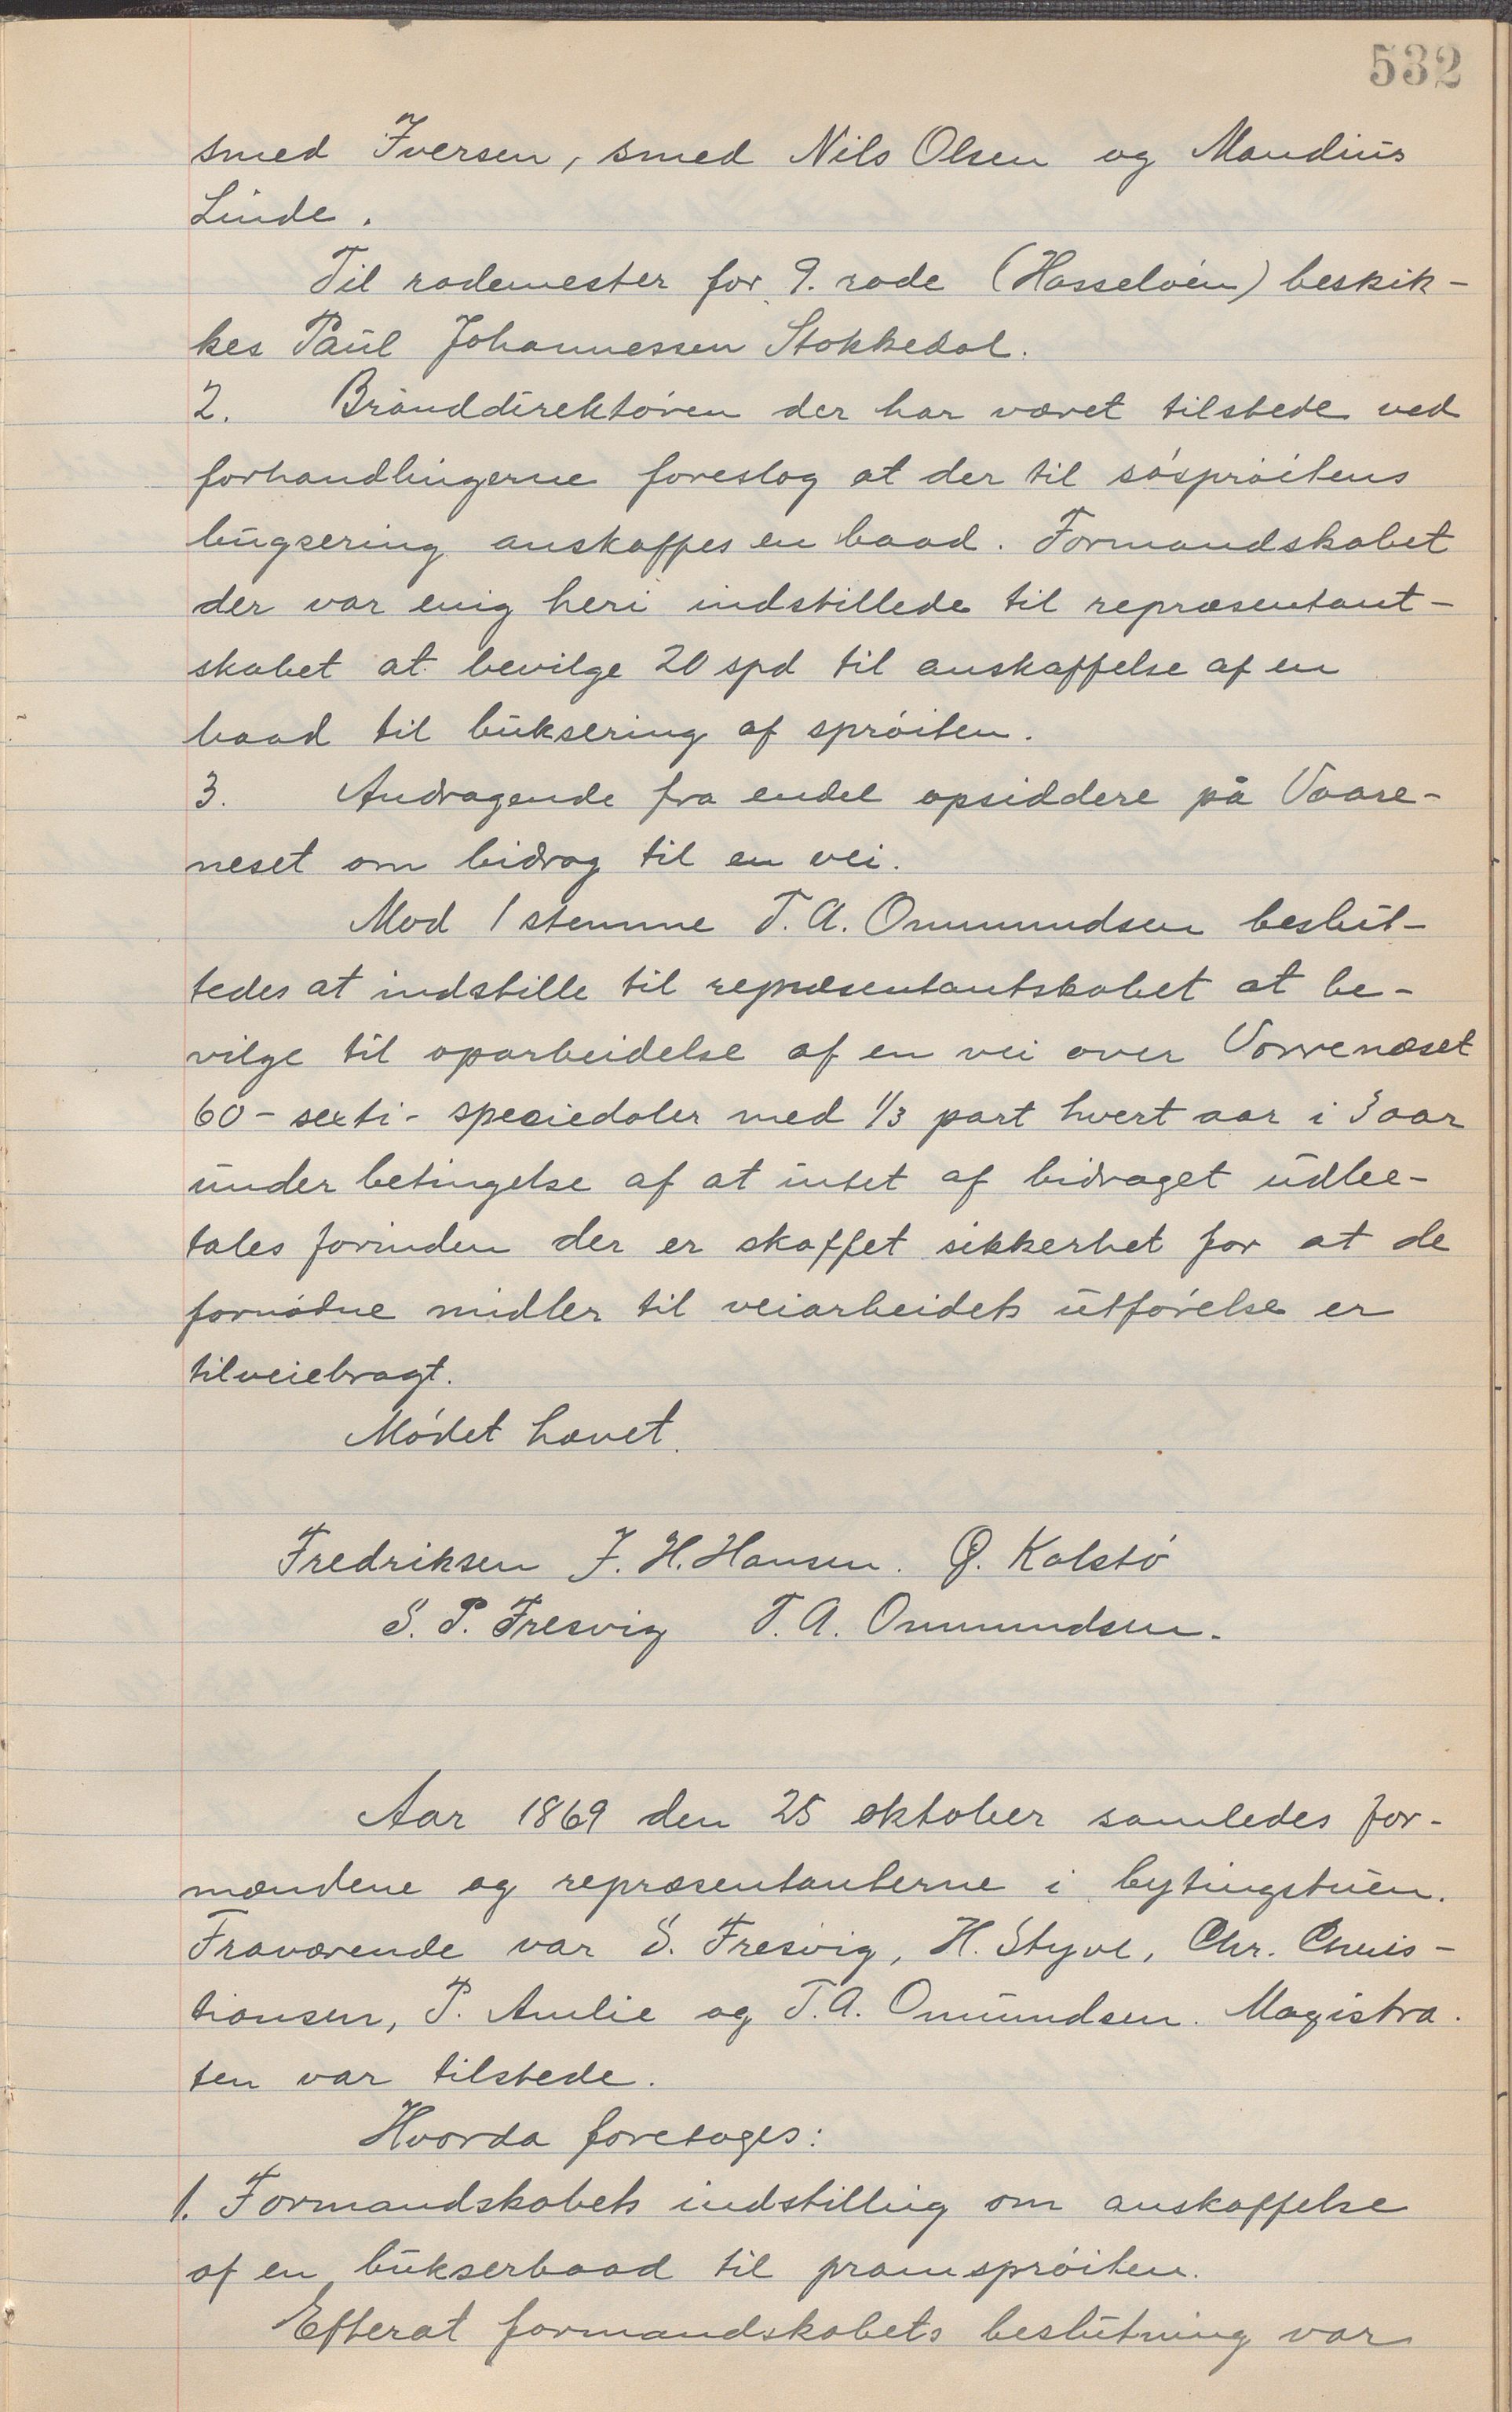 532
smed Iversen, smed Nils Olsen og Mandius
Linde.
Til rodemester for 9. rode (Hasseløen) beskik-
kes Paul Johannessen Stokkedal.
2. Branddirektøren der har været tilstede ved
forhandlingerne foreslog at der til søsprøitens
bugsering anskaffes en baad. Formandskabet
der var enig heri indstillede til repræsentant-
skabet at bevilge 20 spd til anskaffelse af en
baad til buksering af sprøiten.
3. Andragende fra endel opsiddere på Vaare-
neset om bidrag til en vei.
Mod 1 stemme T. A. Ommundsen beslut-
tedes at indstille til repræsentantskabet at be-
vilge til oparbeidelse af en vei over Vorrenæset
60 - sexti - speciedaler med 1/3 part hvert aar i 3 aar
under betingelse af at intet af bidraget udbe-
tales forinden der er skaffet sikkerhet for at de
fornødne midler til veiarbeidets utførelse er
tilveiebragt.
Mødet hævet.
Fredriksen J. H. Hansen. Ø. Kalstø
S. P. Fresvig T. A. Ommundsen.
Aar 1869 den 25 oktober samledes for-
mændene og repræsentanterne i bytingstuen.
Fraværende var S. Fresvig, H. Styve, Chr. Chris-
tiansen, P. Amlie og T. A. Omundsen. Magistra-
ten var tilstede.
Hvorda foretoges:
1. Formandskabets indstilling om anskaffelse
af en bukserbaad til pramsprøiten.
Efterat formandskabets beslutning var